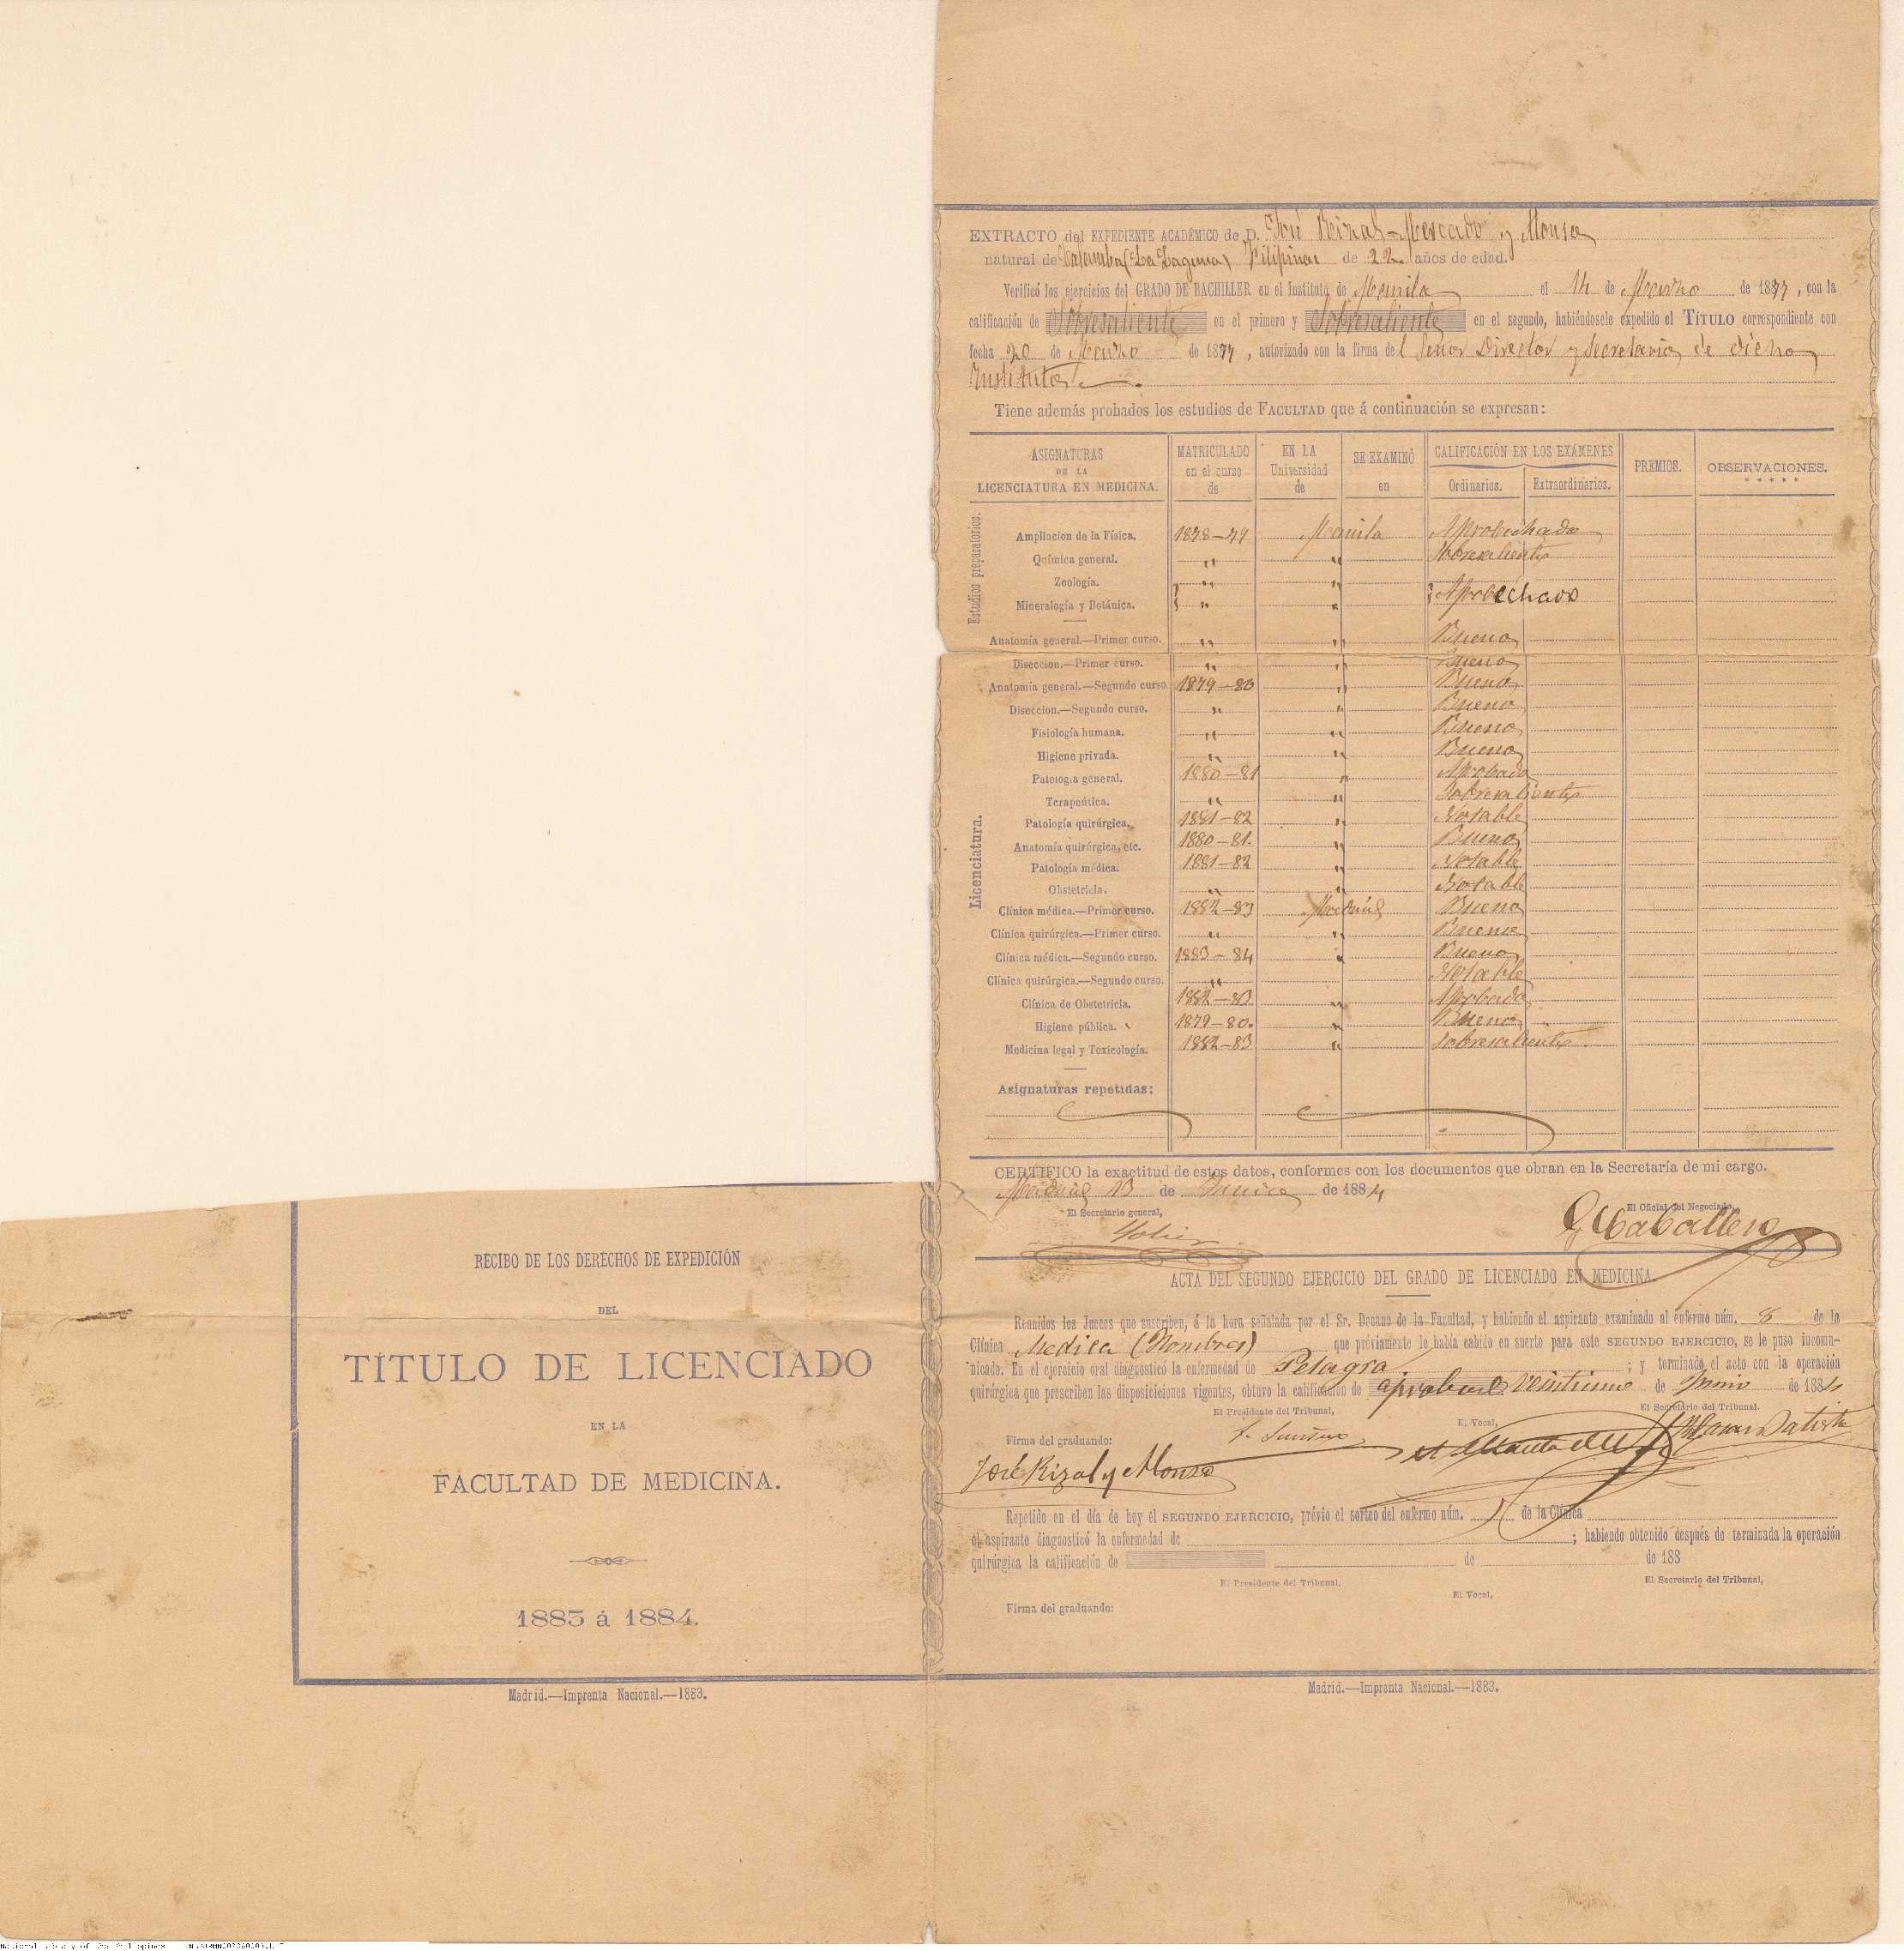 EXTRACTO del EXPEDIENTE ACADÉMICO de D. José Rizal-Mercado y Alonso
natural de Calamba (La Laguna) Filipinas de 22 años de edad.
Verificó los ejercicios del GRADO DE BACHILLER en el Instituto de Manila el 14 de Marzo de 1877, con la
calificación de Sobresaliente en el primero y Sobresaliente en el segundo, habiéndosele expedido el TÍTULO correspondiente con
fecha 20 de Marzo de 1877, autorizado con la firma del Señor Director y Secretario de dicho
Instituto.
Tiene además probados los estudios de FACULTAD que á continuación se expresan:
ASIGNATURAS DE LA LICENCIATURA EN MEDICINA. MATRICULADO en el curso de EN LA Universidad de SE EXAMINÓ en CALIFICACIÓN EN LOS EXÁMENES Ordinarios. Extraordinarios. PREMIOS. OBSERVACIONES.
Estudios preparatorios.
Ampliacion de la Física. 1878-79 Manila Aprobechado
Química general. " " Sobresaliente
Zoología. " "
Mineralogía y Botánica. " " Aprobechado
Licenciatura.
Anatomía general.—Primer curso. " " Bueno
Diseccion.—Primer curso. " " Bueno
Anatomía general.—Segundo curso 1879-80 " Bueno
Diseccion.—Segundo curso. " " Bueno
Fisiología humana. " " Bueno
Higiene privada. " " Bueno
Patología general. 1880-81 " Aprobado
Terapeútica. " " Sobresaliente
Patología quirúrgica. 1881-82 " Notable
Anatomía quirúrgica, etc. 1880-81. " Bueno
Patología médica. 1881-82 " Notable
Obstetricia. " " Notable
Clínica médica.—Primer curso. 1882-83 Madrid Bueno
Clínica quirúrgica.—Primer curso. " " Bueno
Clínica médica.—Segundo curso. 1883-84 " Bueno
Clínica quirúrgica.—Segundo curso. " Notable
Clínica de Obstetricia. 1882-83 " Aprobado
Higiene pública. 1879-80. " Bueno
Medicina legal y Toxicología. 1882-83 " Sobresaliente
Asignaturas repetidas:
CERTIFICO la exactitud de estos datos, conformes con los documentos que obran en la Secretaría de mi cargo.
Madrid 13 de Junio de 1884
El Secretario general, El Oficial del Negociado,
Caballero
ACTA DEL SEGUNDO EJERCICIO DEL GRADO DE LICENCIADO EN MEDICINA.
Reunidos los Jueces que suscriben, á la hora señalada por el Sr. Decano de la Facultad, y habiendo el aspirante examinado al enfermo núm. 8 de la
Clínica Medica (Hombres) que préviamente le había cabido en suerte para este SEGUNDO EJERCICIO, se le puso incomu-
nicado. En el ejercicio oral diagnosticó la enfermedad de Pelagra; y terminado el acto con la operación
quirúrgica que prescriben las disposiciciones vigentes, obtuvo la calificación de aprobado veintiuno de Junio de 1884
El Presidente del Tribunal, El Vocal, El Secretario del Tribunal.
Firma del graduando:
José Rizal y Alonso
Repetido en el día de hoy el SEGUNDO EJERCICIO, prévio el sorteo del enfermo núm. de la Clínica
el aspirante diagnosticó la enfermedad de ; habiendo obtenido después de terminada la operación
quirúrgica la calificación de de de 188
El Presidente del Tribunal, El Vocal, El Secretario del Tribunal,
Firma del graduando:
Madrid.—Imprenta Nacional.—1883.
RECIBO DE LOS DERECHOS DE EXPEDICIÓN
DEL
TÍTULO DE LICENCIADO
EN LA
FACULTAD DE MEDICINA.
1883 á 1884.
Madrid.—Imprenta Nacional.—1883.